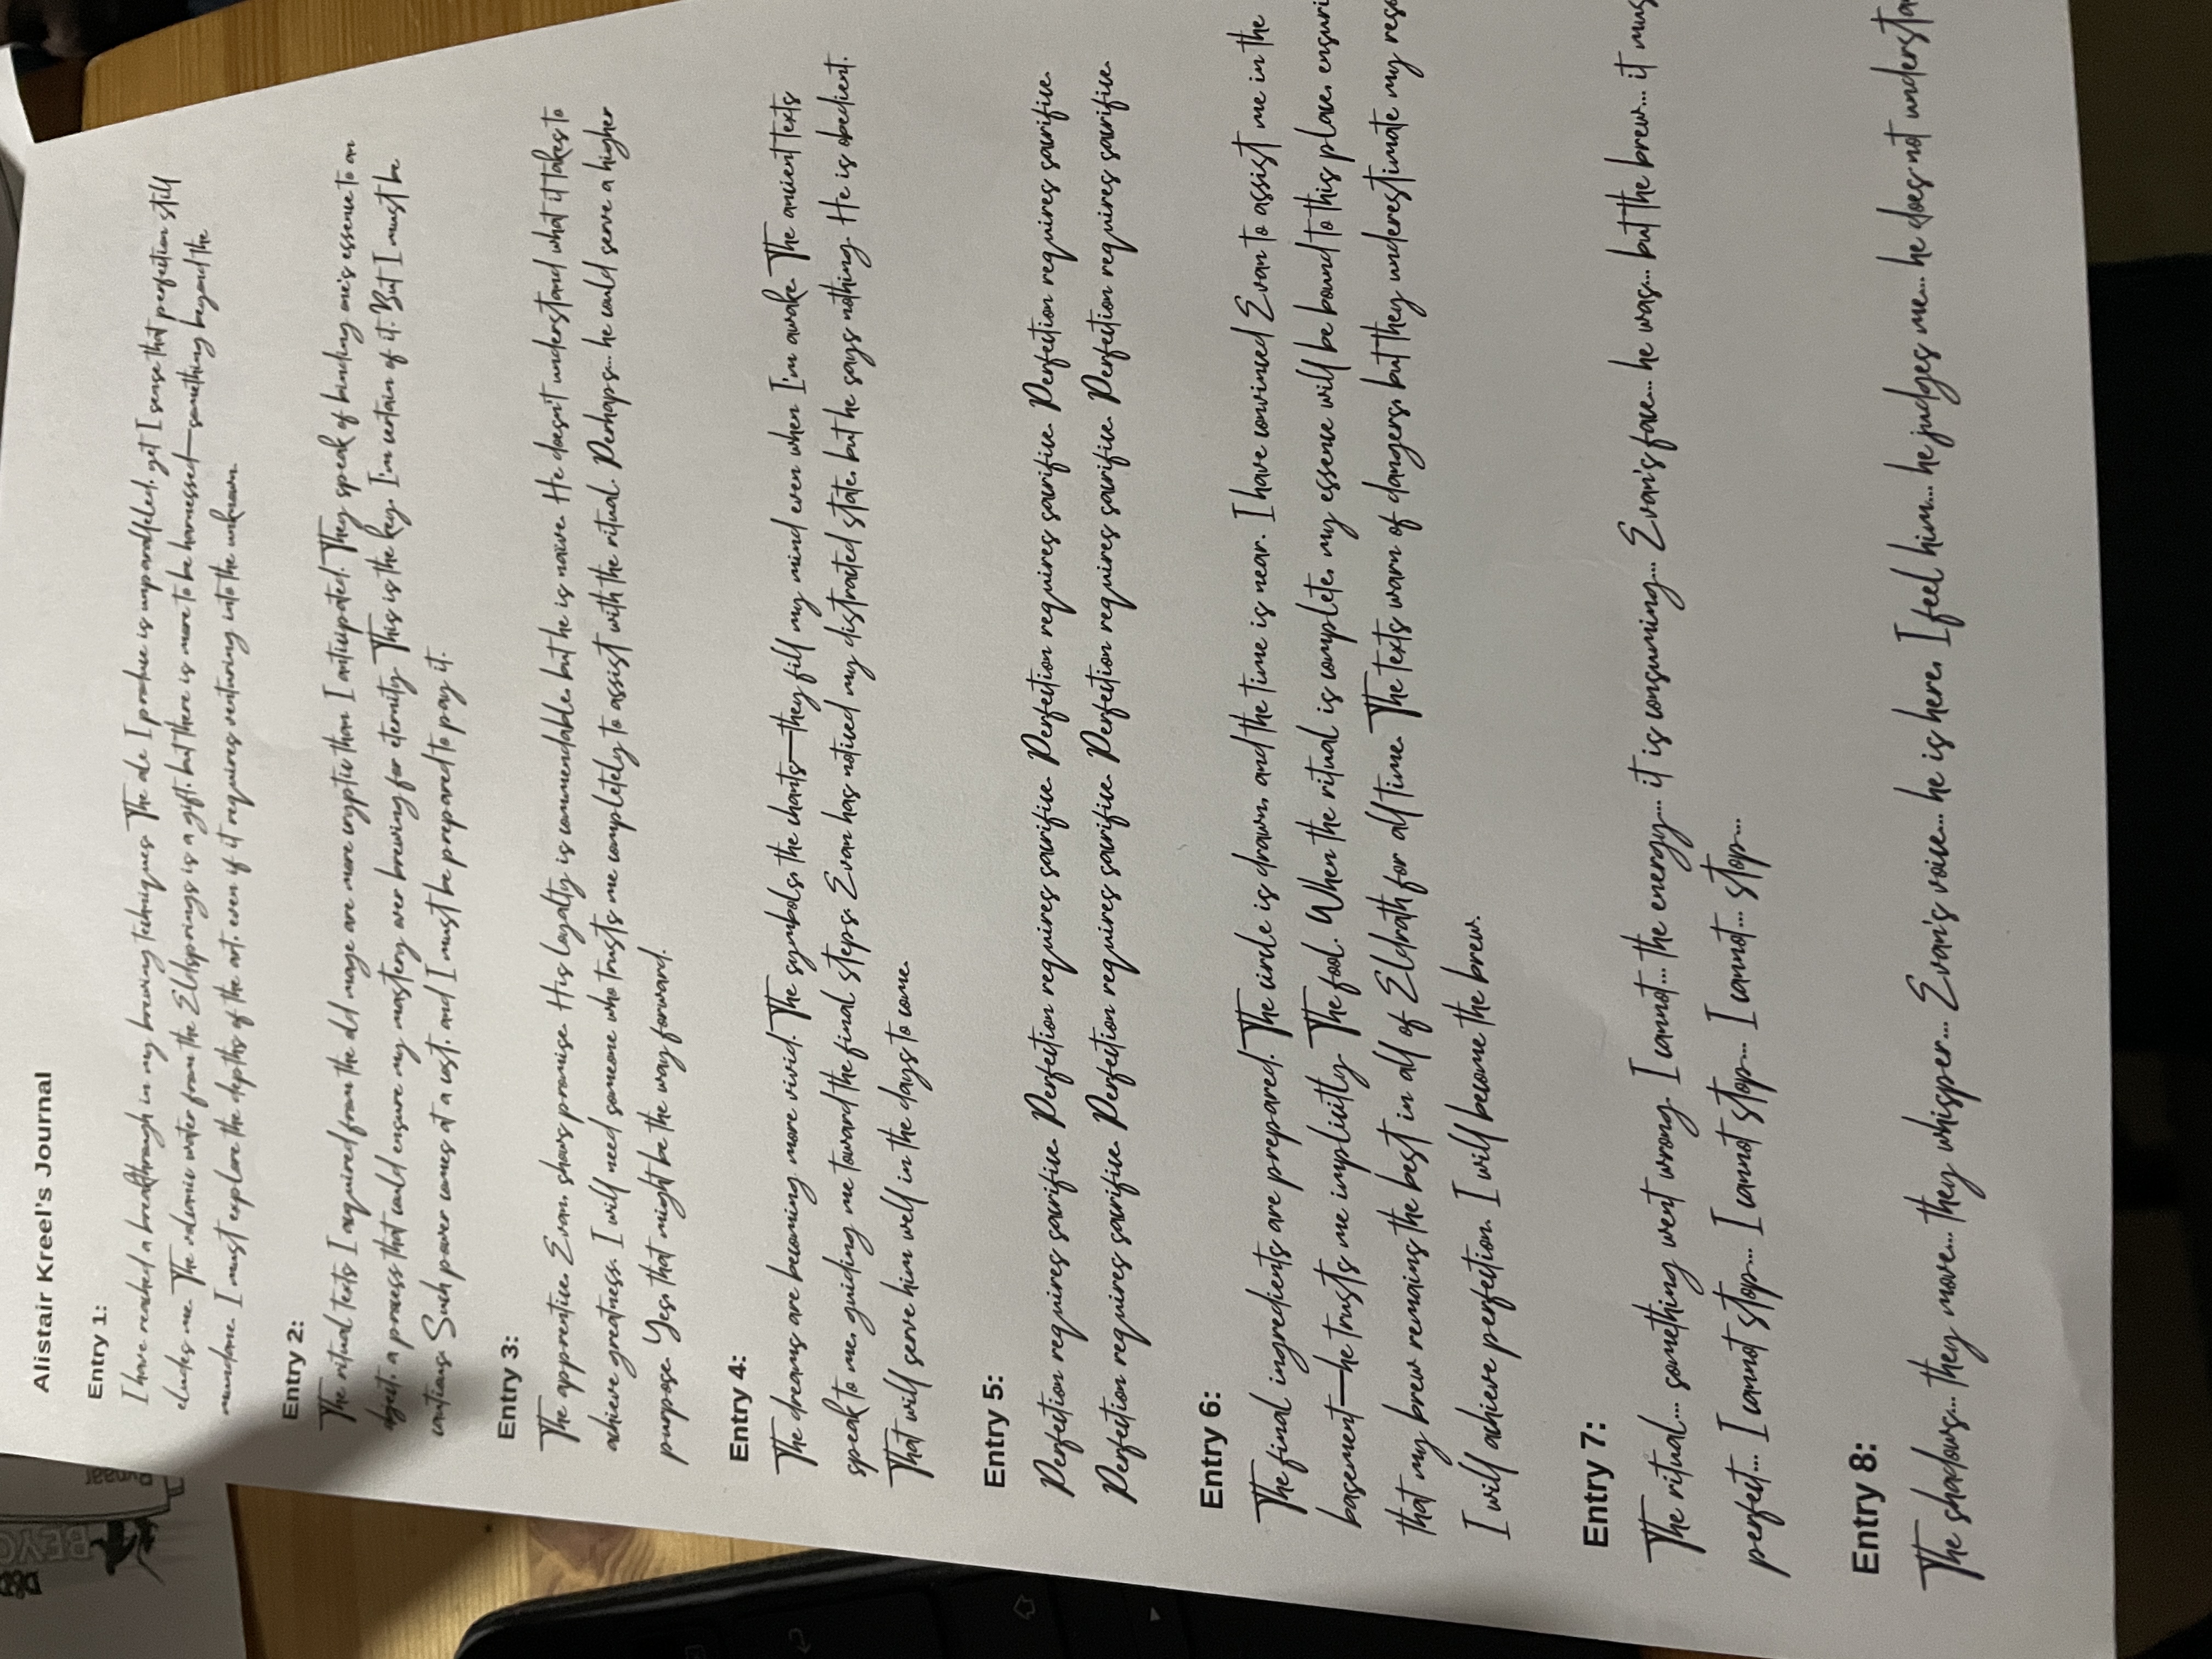 Alistair Kreel's Journal
Entry 1:
I have reached a breakthrough in my brewing techniques. The ale I produce is unparalleled, yet I sense that perfection still
eludes me. The volcanic water from the Eldsprings is a gift, but there is more to be harnessed—something beyond the
mundane. I must explore the depths of the art, even if it requires venturing into the unknown.
Entry 2:
The ritual texts I acquired from the old mage are more cryptic than I anticipated. They speak of binding one's essence to an
object, a process that could ensure my mastery over brewing for eternity. This is the key, I'm certain of it. But I must be
cautious. Such power comes at a cost, and I must be prepared to pay it.
Entry 3:
The apprentice, Evan, shows promise. His loyalty is commendable, but he is naive. He doesn't understand what it takes to
achieve greatness. I will need someone who trusts me completely to assist with the ritual. Perhaps... he could serve a higher
purpose. Yes, that might be the way forward.
Entry 4:
The dreams are becoming more vivid. The symbols, the chants—they fill my mind even when I'm awake. The ancient texts
speak to me, guiding me toward the final steps. Evan has noticed my distracted state, but he says nothing. He is obedient.
That will serve him well in the days to come.
Entry 5:
Perfection requires sacrifice. Perfection requires sacrifice. Perfection requires sacrifice. Perfection requires sacrifice.
Perfection requires sacrifice. Perfection requires sacrifice. Perfection requires sacrifice. Perfection requires sacrifice.
Entry 6:
The final ingredients are prepared. The circle is drawn, and the time is near. I have convinced Evan to assist me in the
basement—he trusts me implicitly. The fool. When the ritual is complete, my essence will be bound to this place, ensuri
that my brew remains the best in all of Eldrath for all time. The texts warn of dangers, but they underestimate my reso
I will achieve perfection. I will become the brew.
Entry 7:
The ritual... something went wrong. I cannot... the energy... it is consuming... Evan's face... he was... but the brew... it mus
perfect... I cannot stop... I cannot stop... I cannot... stop...
Entry 8:
The shadows... they move... they whisper... Evan's voice... he is here. I feel him... he judges me... he does not understa
D&D
BEYO